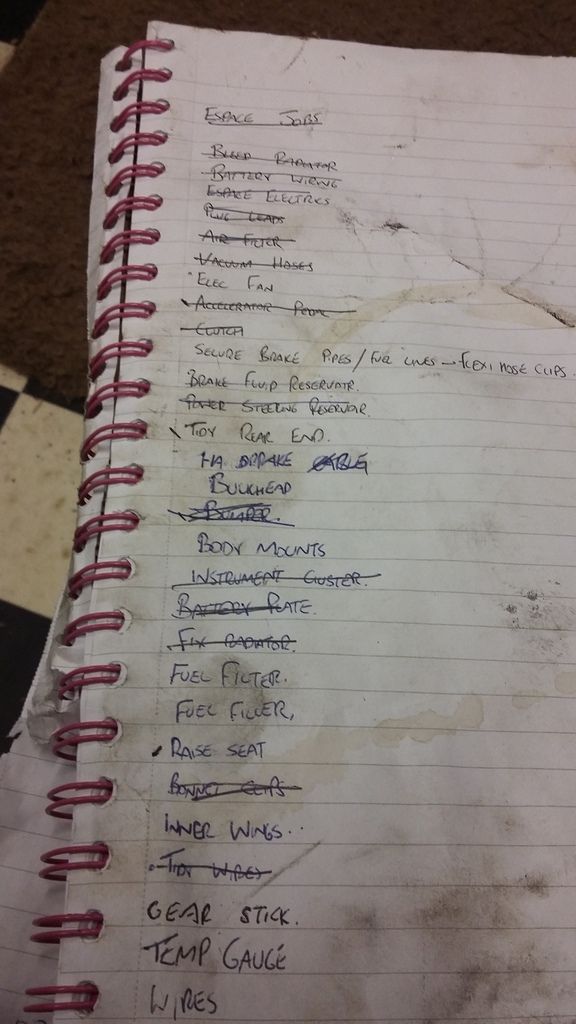 ESPACE JOBS
BLEED RADIATOR
BATTERY WIRING
ESPACE ELECTRICS
PLUG LEADS
AIR FILTER
VACUUM HOSES
ELEC FAN
ACCELERATOR PEDAL
CLUTCH
SECURE BRAKE PIPES / FUEL LINES - FLEXI HOSE CLIPS.
BRAKE FLUID RESERVOIR.
POWER STEERING RESERVOIR.
TIDY REAR END.
HANDBRAKE CABLE
BULKHEAD
BUMPER.
BODY MOUNTS
INSTRUMENT CLUSTER.
BATTERY PLATE.
FIX RADIATOR.
FUEL FILTER.
FUEL FILLER,
RAISE SEAT
BONNET CLIPS
INNER WINGS..
TIDY WIRES
GEAR STICK.
TEMP GAUGE
WIRES